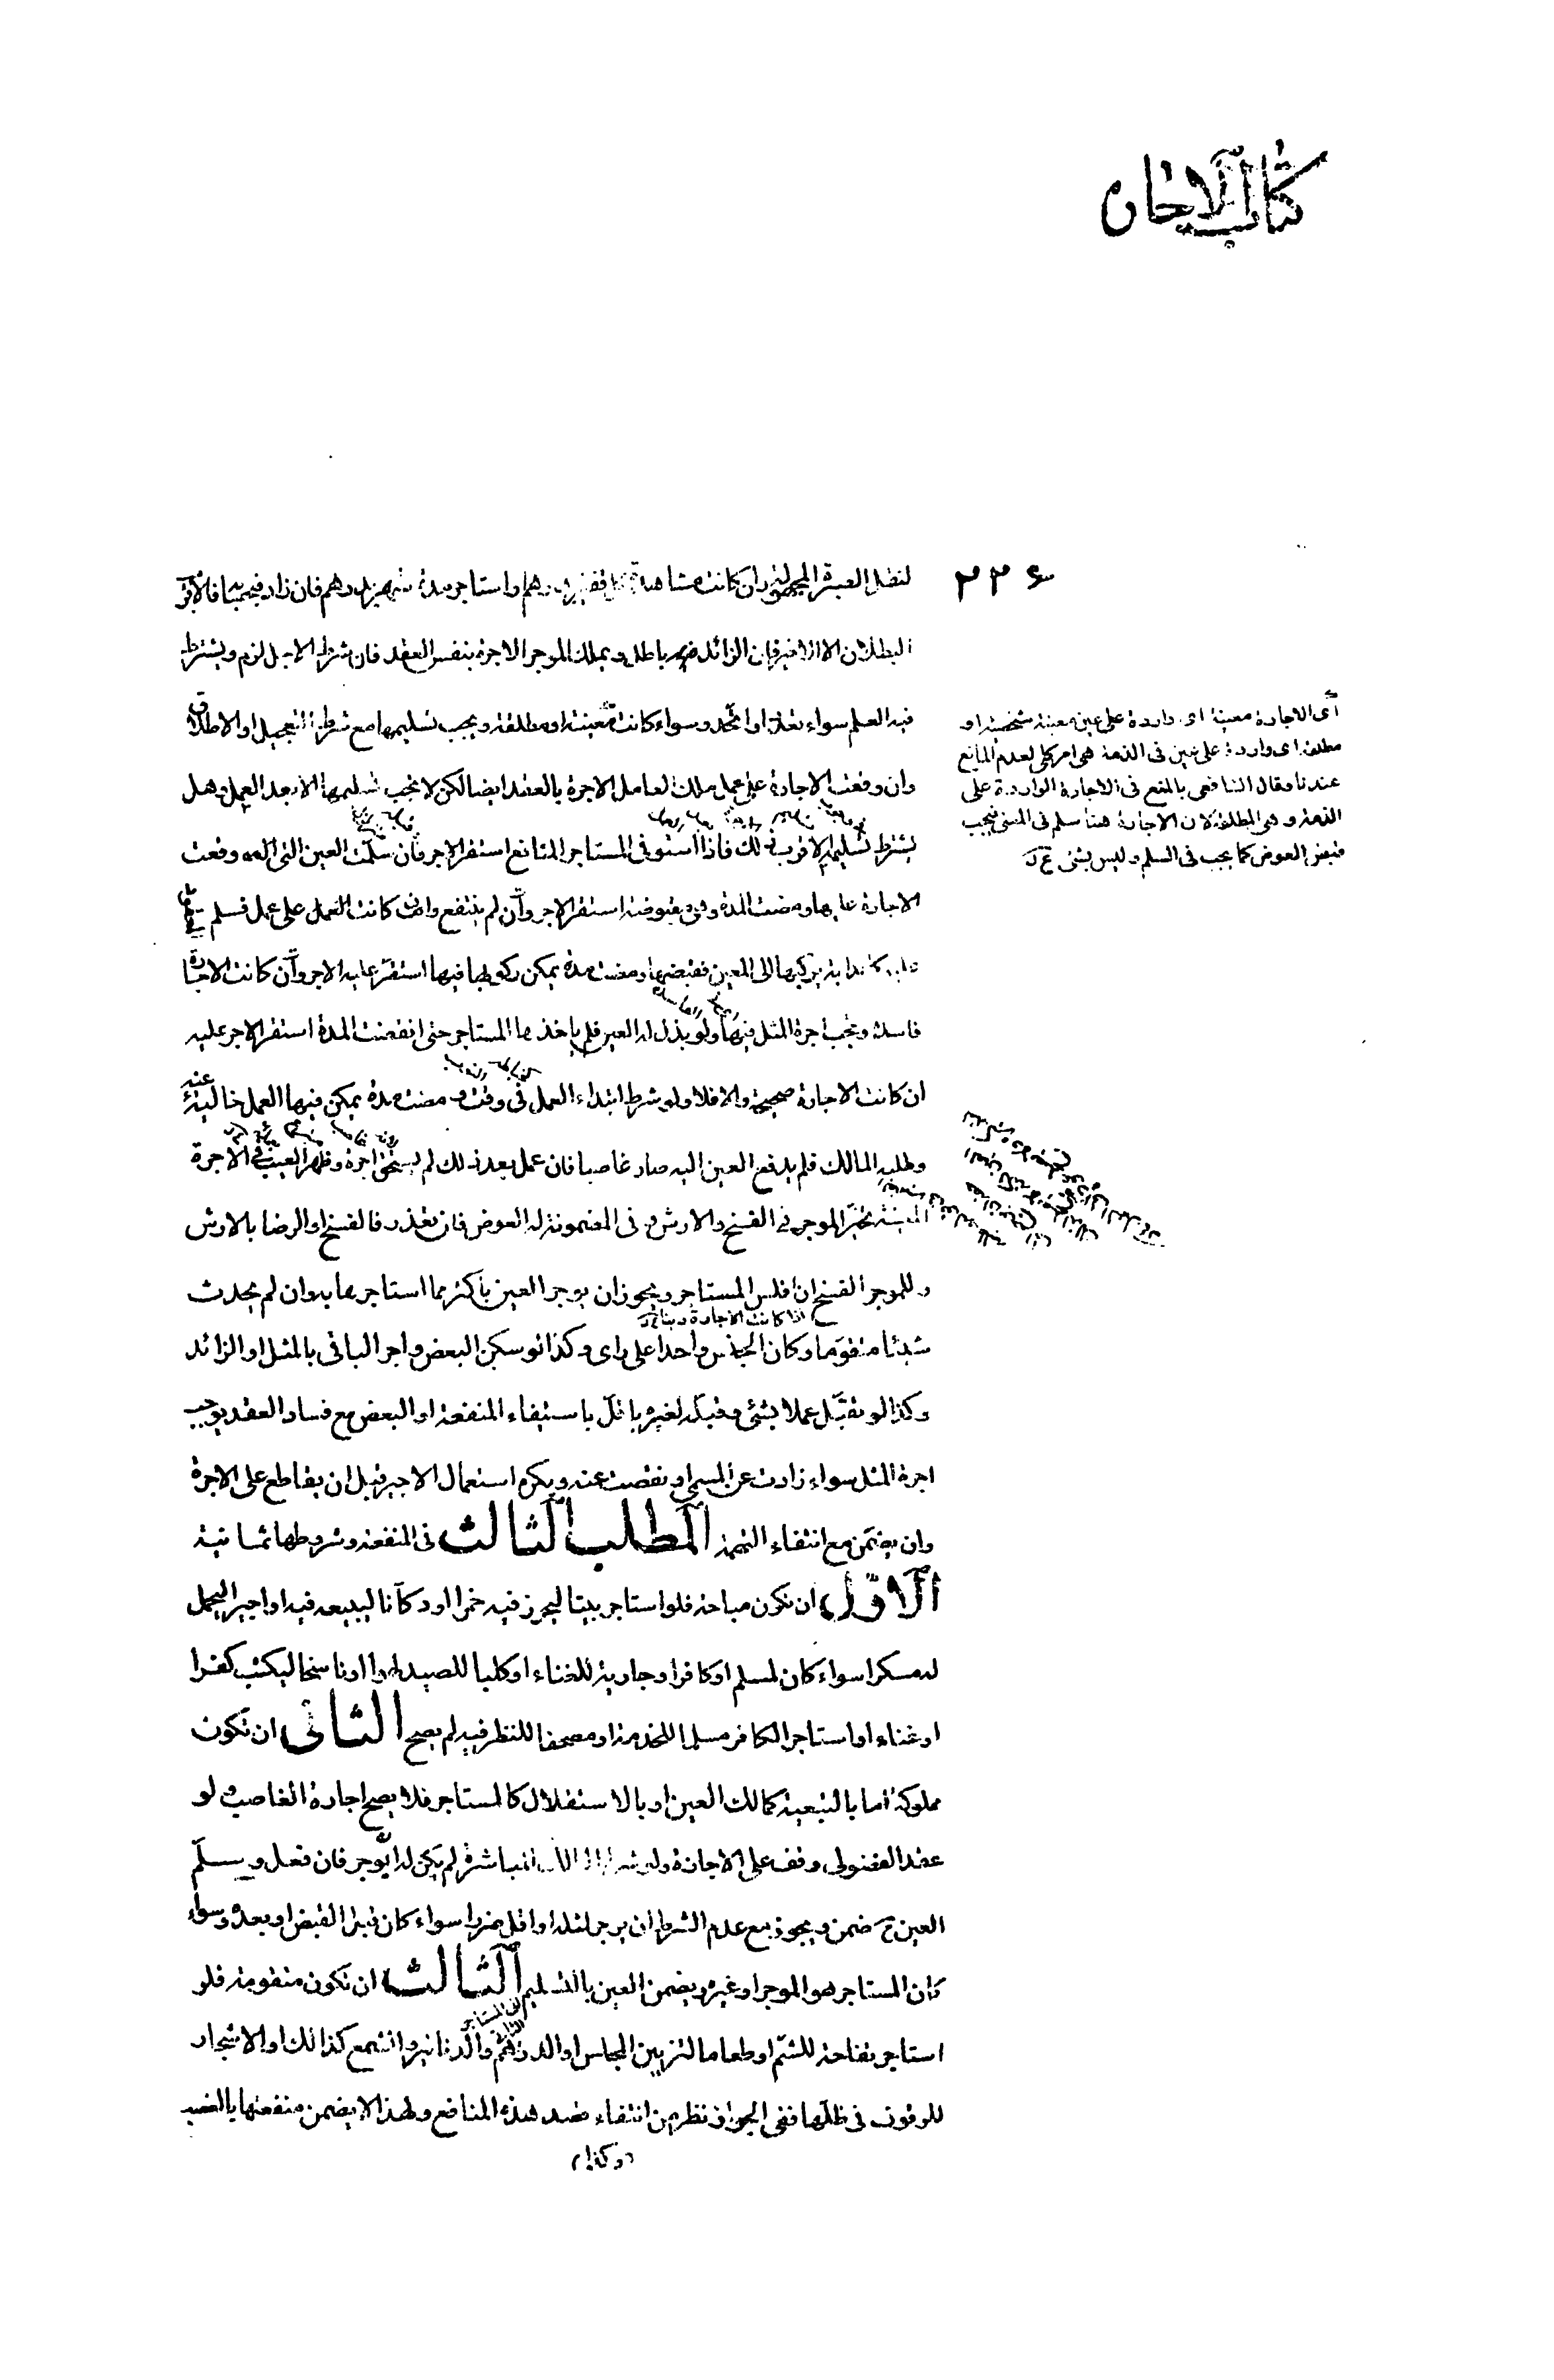 كتاب الاجارة
٢٢٦
لنقل الصبرة المجهولة وان كانت مشاهدة كل قفيز بدرهم او استاجر مدة شهر بدرهم فان زاد فبحسابه فالاقرب
البطلان الا ان الزائد باطل ويملك الموجر الاجرة بنفس العقد فان شرط الاجل لزم ويشترط
فيه العلم سواء تعدد او اتحد وسواء كانت معينة او مطلقة ويجب تسليمها مع شرط التعجيل او الاطلاق
وان وقعت الاجارة على عمل ملك العامل الاجرة بالعقد ايضا لكن لا يجب تسليمها الا بعد العمل وهل
يشترط تسليمه الاقرب ذلك فاذا استوفى المستاجر المنافع استقر الاجر فان سلمت العين التى وقعت
الاجارة عليها ومضت المدة وهى مقبوضة استقر الاجر وان لم ينتفع وان كانت على عمل فسلم
دابة يركبها الى المعين فقبضها ومضت مدة يمكن ركوبها فيها استقر عليه الاجر وان كانت الاجارة
فاسدة ويجب اجرة المثل فيها ولو بذل له العين فلم ياخذها المستاجر حتى انقضت المدة استقر الاجر عليه
ان كانت الاجارة صحيحة والا فلا ولو شرط ابتداء العمل فى وقت ومضت مدة يمكن فيها العمل خالية عنه
وطلبه المالك فلم يدفع العين اليه صار غاصبا فان عمل بعد ذلك لم يستحق اجرة وظهر العيب فى الاجرة
المعينة تخير الموجر فى الفسخ والارش وفى المضمونة له العوض فان تعذر فالفسخ او الرضا بالارش
وللموجر الفسخ ان افلس المستاجر ويجوز ان يوجر العين باكثر مما استاجرها به وان لم يحدث
اذا كانت الاجارة
شيئا متقوما وكان الجنس واحدا على راى وكذا لو سكن البعض واجر الباقى بالمثل او الزائد
وكذا لو تقبل عملا بشئ وقبله لغيره باقل باستيفاء المنفعة او البعض مع فساد العقد يوجب
اجرة المثل سواء زادت عن المسمى او نقصت عنه ويكره استعمال الاجير قبل ان يقاطع على الاجرة
وان يضمن مع انتفاء التهمة المطلب الثالث فى المنفعة وشروطها ثمانية
الاول ان تكون مباحة فلو استاجر بيتا ليحرز فيه خمرا او دكانا ليبيعه فيه او اجيرا ليحمل
له مسكرا سواء كان لمسلم او كافر او جارية للغناء او كلبا للصيد لهوا او ناسخا ليكتب كفرا
او غناء او استاجر الكافر مسلما للخدمة او مصحفا للنظر فيه لم يصح الثانى ان تكون
مملوكة اما بالتبعية كمالك العين او بالاستقلال كالمستاجر فلا يصح اجارة الغاصب ولو
عقد الفضولى وقف على الاجازة ولو شرط المباشرة لم يكن له ان يوجر فان فعل وسلم
العين ح ضمن ويجوز مع عدم الشرط ان يوجر لمثله او اقل ضررا سواء كان قبل القبض او بعده وسواء
كان المستاجر هو الموجر او غيره ويضمن العين بالتسليم الثالث ان تكون متقومة فلو
استاجر تفاحة للشم او طعاما لتزيين المجلس او الدراهم والدنانير والشمع كذلك او الاشجار
للوقوف فى ظلها ففى الجواز نظر من انتفاء قصد هذه المنافع ولهذا لا يضمن منفعتها بالغصب
وكذا
اى الاجارة معينة اى واردة على عين معينة شخصية او
مطلقة اى واردة على عين فى الذمة هى امر كلى لعدم المانع
عندنا وقال الشافعى بالمنع فى الاجارة الواردة على
الذمة وهى المطلقة لان الاجارة هنا سلم فى المعنى فيجب
قبض العوض كما يجب فى السلم وليس بشئ